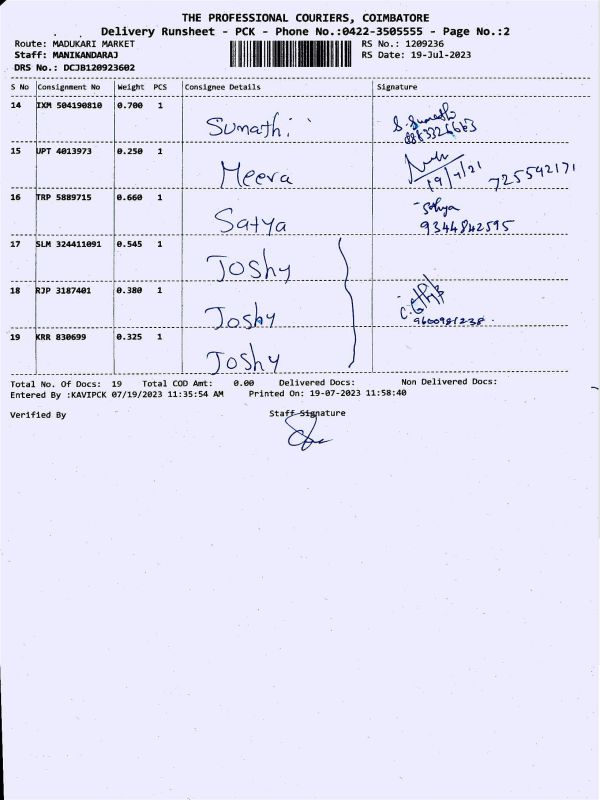 THE PROFESSIONAL COURIERS, COIMBATORE
Delivery Runsheet - PCK - Phone No.:0422-3505555 - Page No.:2
Route: MADUKARI MARKET RS No.: 1209236
Staff: MANIKANDARAJ RS Date: 19-Jul-2023
DRS No.: DCJB120923602
S No Consignment No Weight PCS Consignee Details Signature
14 IXM 504190810 0.700 1 Sumathi S. Sumathi
15 UPT 4013973 0.250 1 Meera
725592171
16 TRP 5889715 0.660 1 Satya Sathya
9344842595
17 SLM 324411091 0.545 1 Joshy
18 RJP 3187401 0.380 1 Joshy
9600981238
19 KRR 830699 0.325 1 Joshy
Total No. Of Docs: 19 Total COD Amt: 0.00 Delivered Docs: Non Delivered Docs:
Entered By :KAVIPCK 07/19/2023 11:35:54 AM Printed On: 19-07-2023 11:58:40
Verified By Staff Signature